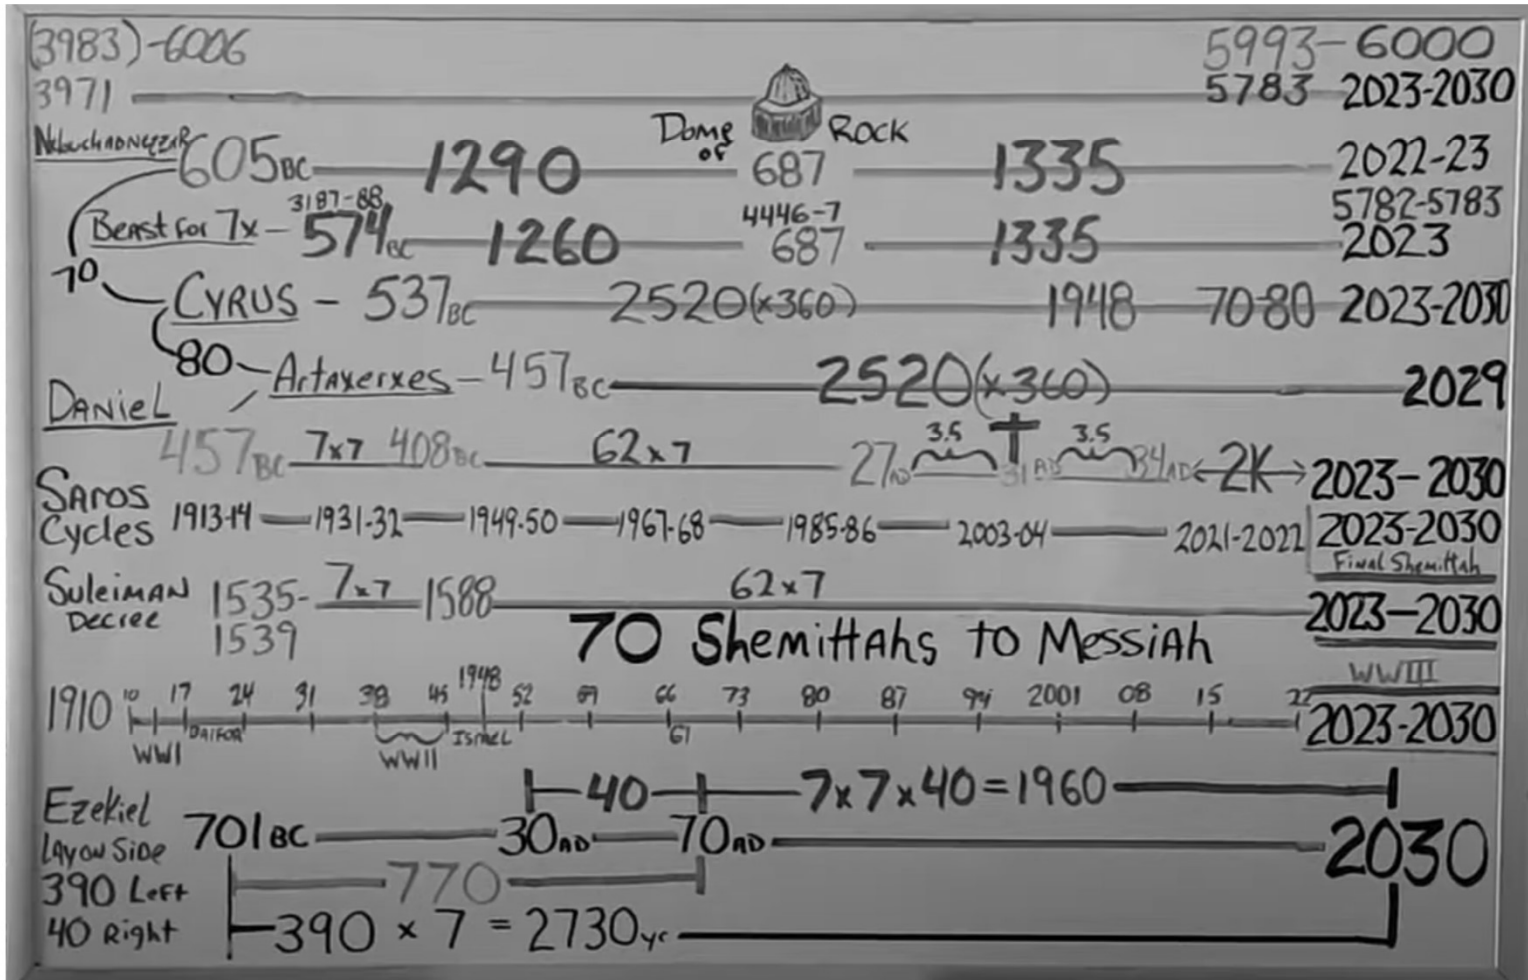 (3983)-6006 5993-6000
3971 5783 2023-2030
Dome of Rock
Nebuchadnezzar 605BC 1290 687 1335 2022-23
3187-88 4446-7 5782-5783
Beast for 7x - 574BC 1260 687 1335 2023
70
CYRUS - 537BC 2520(x360) 1948 70-80 2023-2030
80 Artaxerxes - 457BC 2520(x360) 2029
DANIEL
457BC 7x7 408BC 62x7 27AD 3.5 31AD 3.5 34AD 2K 2023-2030
Saros Cycles 1913-14 1931-32 1949-50 1967-68 1985-86 2003-04 2021-2022 2023-2030
Final Shemittah
Suleiman Decree 1535-1539 7x7 1588 62x7 2023-2030
70 Shemittahs to Messiah
WWIII
1910 10 17 24 31 38 45 1948 52 59 66 73 80 87 94 2001 08 15 22 2023-2030
WWI WWII Israel 67
40 7x7x40=1960
Ezekiel 701BC 30AD 70AD 2030
Lay on Side
390 Left 770
40 Right 390 x 7 = 2730yr